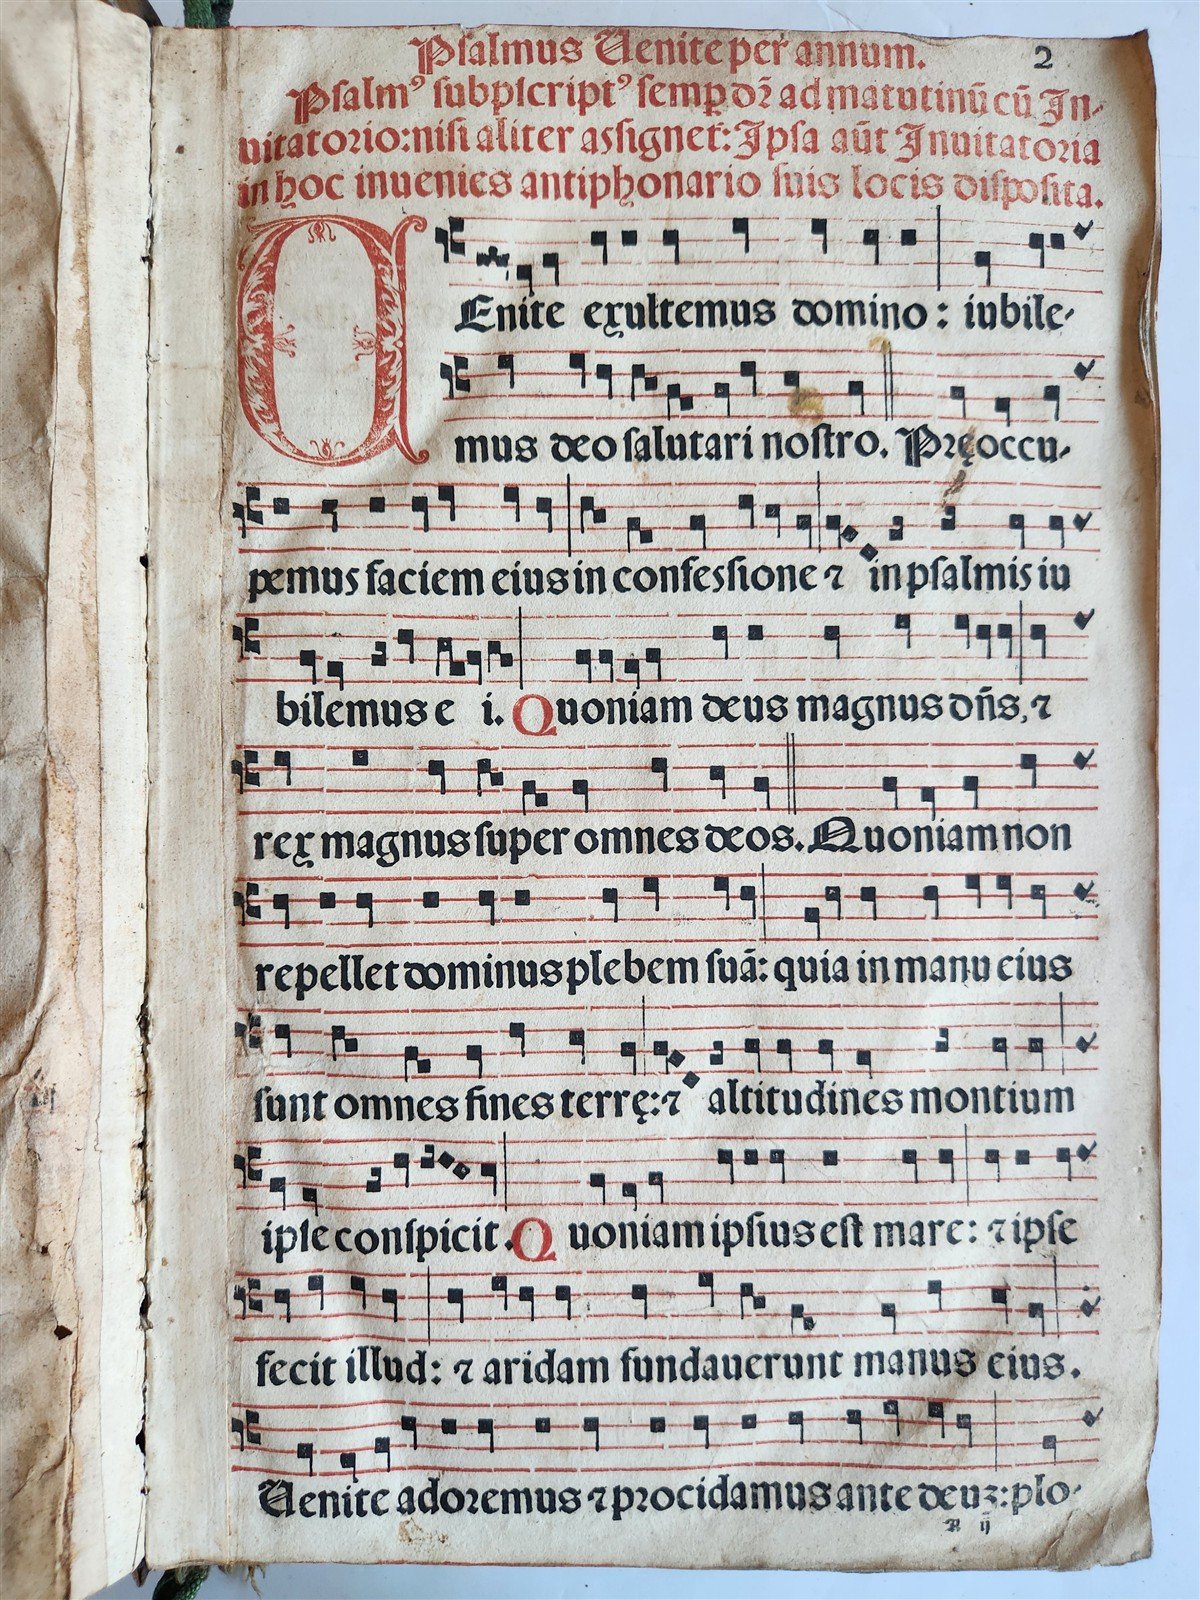 Psalmus Uenite per annum.
2
Psalmꝰ subpscriptꝰ semꝑ dr̄ ad matutinū cū In-
uitatorio: nisi aliter assignet̄: Ipsa aūt Inuitatoria
in hoc inuenies antiphonario suis locis disposita.
UEnite exultemus domino: iubile-
mus deo salutari nostro. Pręoccu-
pemus faciem eius in confessione ⁊ in psalmis iu
bilemus e i. Quoniam deus magnus dn̄s, ⁊
rex magnus super omnes deos. Quoniam non
repellet dominus plebem suā: quia in manu eius
sunt omnes fines terrę: ⁊ altitudines montium
ipse conspicit. Quoniam ipsius est mare: ⁊ ipse
fecit illud: ⁊ aridam fundauerunt manus eius.
Uenite adoremus ⁊ procidamus ante deuʒ: plo-
A ij